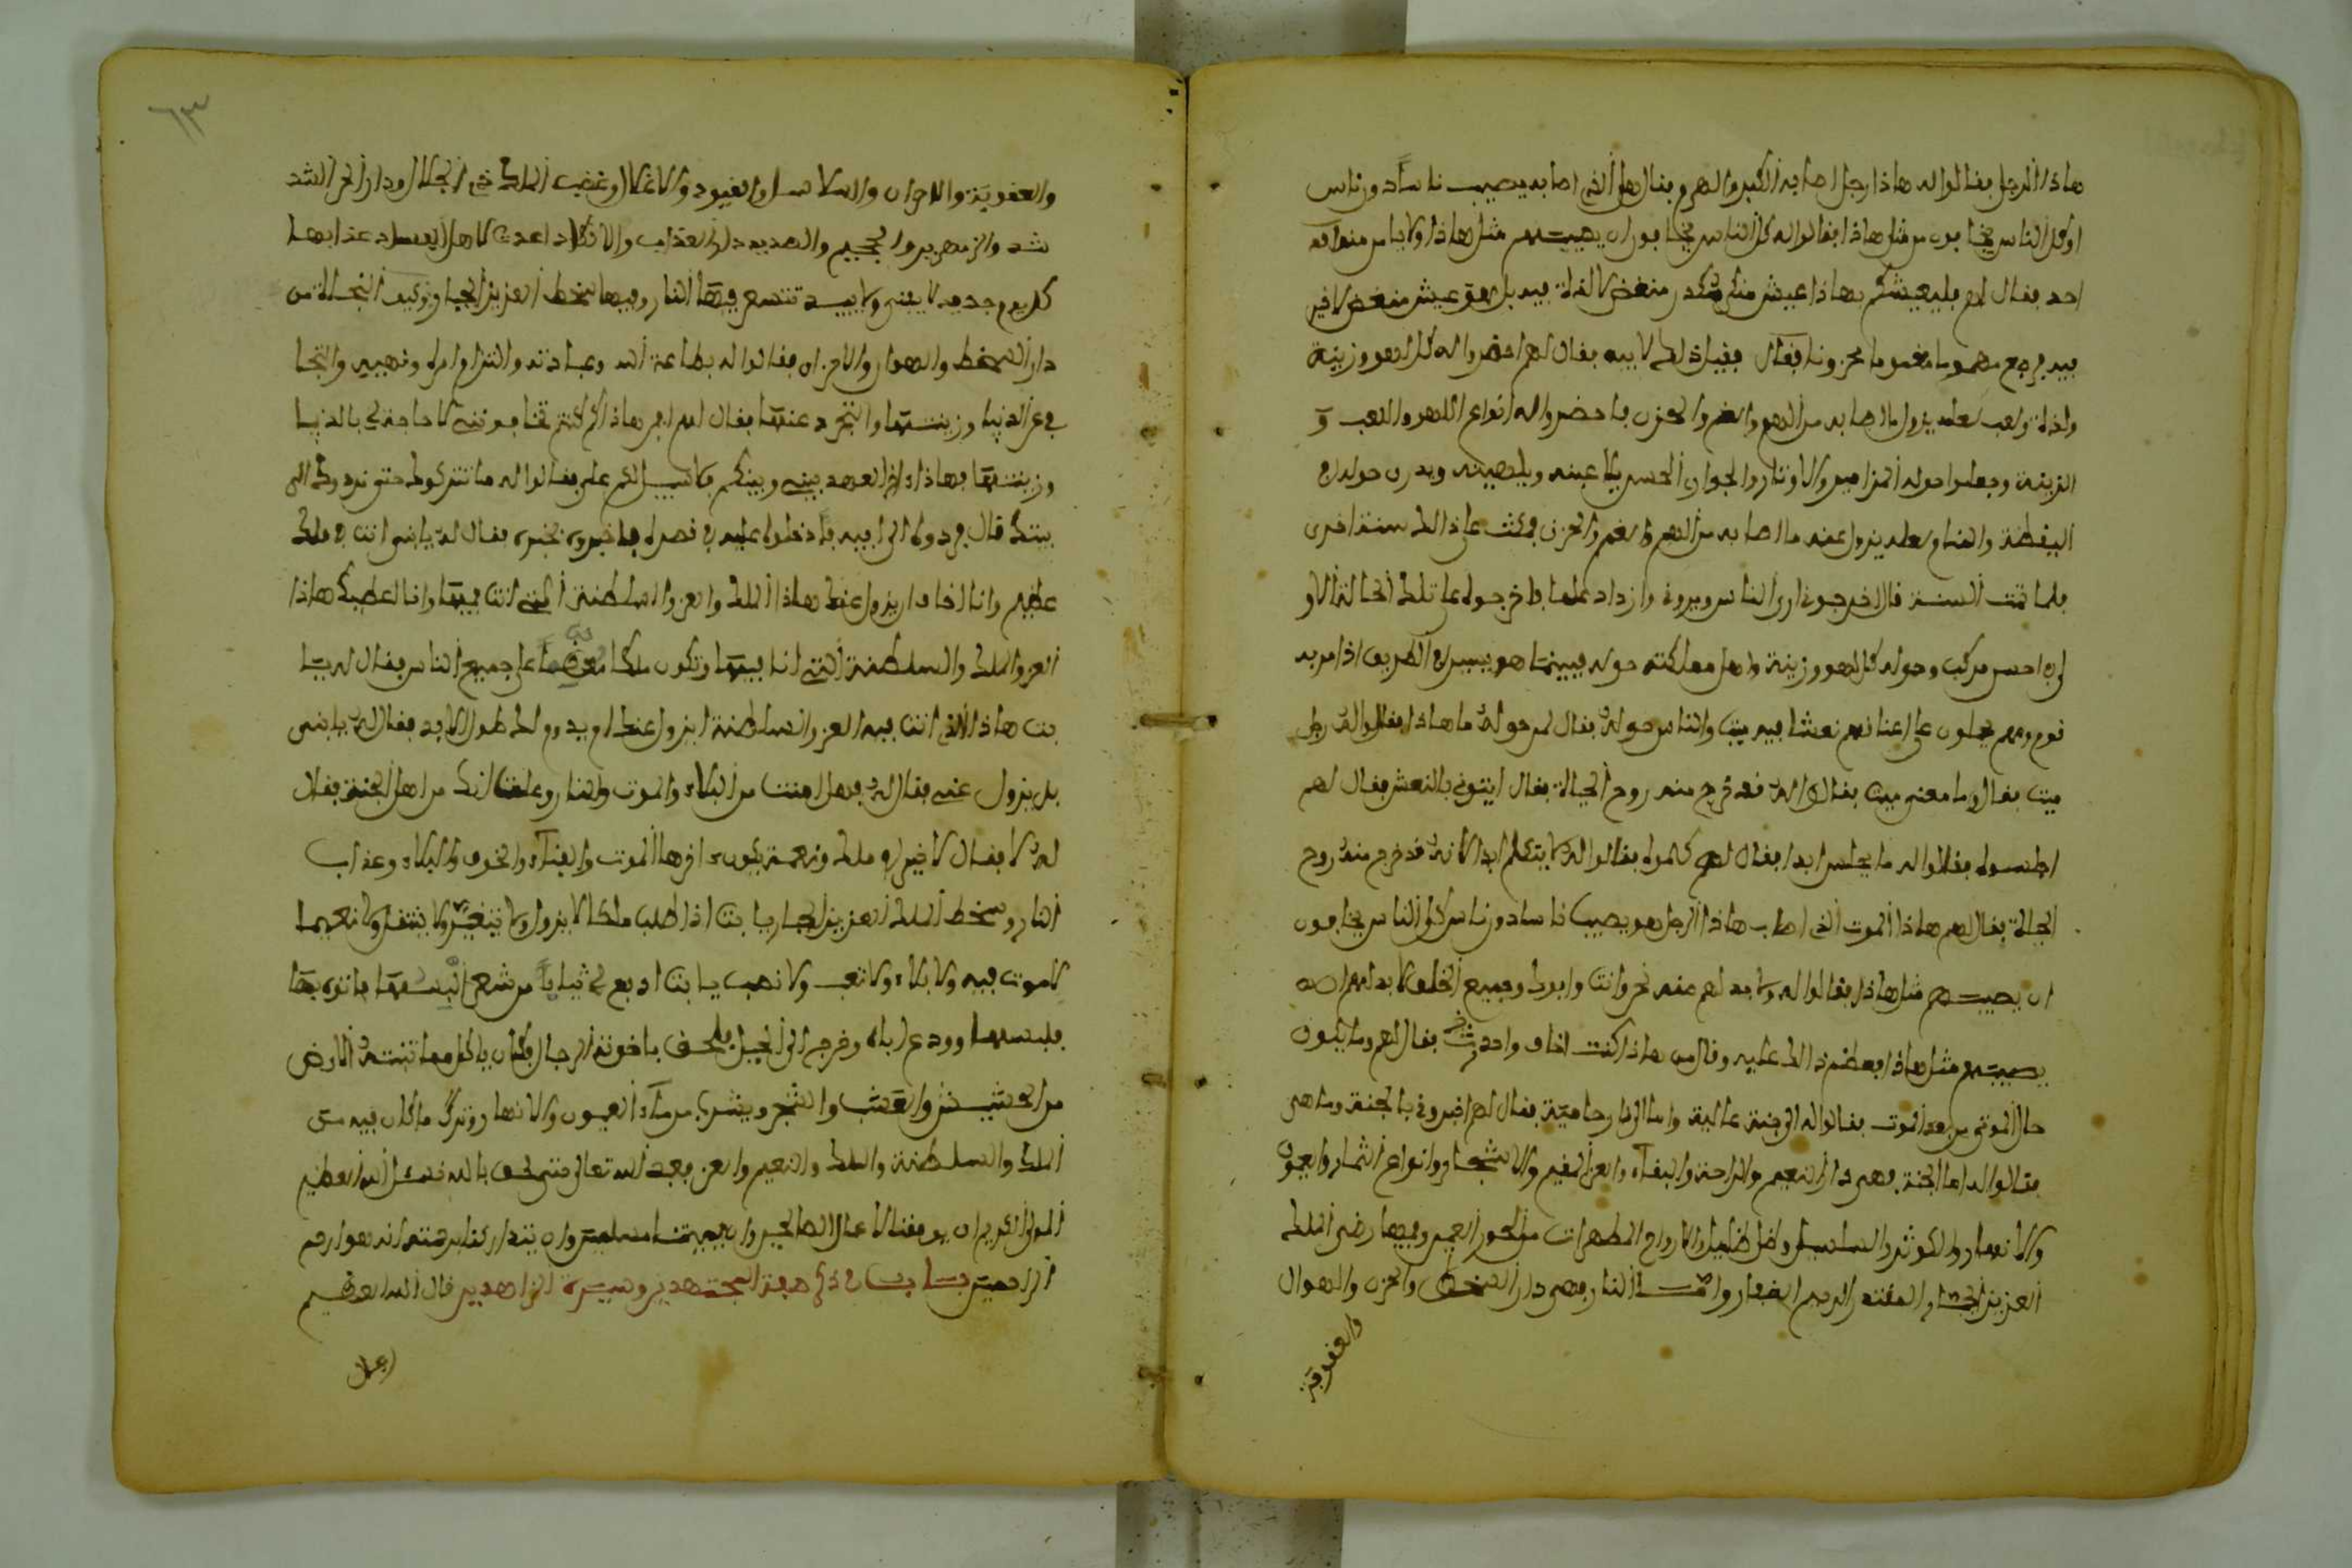 هاذا الرجل فقالوا له هاذا رجل اصابه الكبر والهرم فقال هل الذي اصابه يصيب ناسا دون ناس
او كل الناس يخافون من مثل هاذا فقالوا له كل الناس يخافون ان يصيبهم مثل هاذا ولا يامن منه
احد فقال لهم فليعيشكم بهاذا عيش منكد مكدر منغص لا لذة فيه بل هو عيش منغص لا خير
فيه فرجع مهموما مغموما محزونا فقال فقيل ذلك لابيه فقال لهم احضروا له كل لهو وزينة
ولذة ولعب لعله يزول ما اصابه من الهم والغم والحزن فاحضروا له انواع اللهو واللعب و
الزينة وجعلوا حوله المزامير والاوتار والجوار الحسن يلاعبنه ويلهينه ويدرن حوله في
اليقظة والمنام لعله يزول عنه ما اصابه من الهم والغم والحزن فمكث على ذالك سنة اخرى
فلما تمت السنة قال اخرجوني ارى الناس ويروني وازداد علما فاخرجوه على تلك الحالة الاو
لى في احسن مركب وحوله كل لهو وزينة واهل مملكته حوله فبينما هو يسير في الطريق اذا مر به
قوم وهم يحملون على اعناقهم نعشا فيه ميت والناس حوله فقال لمن حوله ما هاذا فقالوا له رجل
ميت فقال وما معنى ميت فقالوا له قد خرج منه روح الحياة فقال ايتوني بالنعش فقال لهم
اجلسوه فقالوا له ما يجلس ابدا فقال لهم كلموه فقالوا له لا يتكلم ابدا لانه قد خرج منه روح
الحياة فقال لهم هاذا الموت الذي اصاب هاذا الرجل هو يصيب ناسا دون ناس او كل الناس يخافون
ان يصيبهم مثل هاذا فقالوا له ولا بد لهم منه نحن وانت وابوك وجميع الخلق لا بد لهم ان
يصيبهم مثل هاذا فعظم ذالك عليه وقال من هاذا كنت اخاف واحذر فقال لهم وما يكون
حال الموتى من بعد الموت فقالوا له الى جنة عالية واما الى نار حامية فقال لهم اخبروني بالجنة وما هي
فقالوا له اما الجنة فهي دار النعيم والراحة والبقاء والعز المقيم والاشجار وانواع الثمار والعيون
والانهار والكوثر والسلسبيل وظل ظليل والازواج المطهرات من الحور العين وفيها رضى الملك
العزيز الجبار المقتدر الرحيم الغفار واما النار فهي دار السخط والحزن والهوان
والعقوبة
٦٣
والعقوبة والاحزان والسلاسل والقيود والاغلال وغضب الملك ذي الجلال ودار الحر الشد
شد والزمهرير والجحيم والصديد دار العذاب والانكاد اعدت لاهل الفساد عذابها
كل يوم جديد لا يفنى ولا يبيد تتسعر فيها النار وفيها سخط العزيز الجبار فكيف النجاة من
دار السخط والهوان والاحزان فقالوا له بطاعة الله وعبادته والتزام امره ونهيه والتجا
في عن الدنيا وزينتها والتجرد عنها فقال لهم امن هاذا كنتم تخافونني لا حاجة لي بالدنيا
وزينتها فهاذا اخر العهد بيني وبينكم فلا سبيل لكم علي فقالوا له ما نتركوك حتى نردوك الى
بيتك قال فردوه الى ابيه فادخلوه عليه في قصره فاخبروه بخبره فقال له يا بني انت في ملك
عظيم وانا اخاف ان يزول عنك هاذا الملك والعز والسلطنة التي انت فيها وانا اعطيك هاذا
العز والملك والسلطنة التي انا فيها وتكون ملكا معظما على جميع الناس فقال له يا ا
بت هاذا الذي انت فيه العز والسلطنة ايزول عنك ام يدوم لك طول الابد فقال له يا بني
بل يزول عني فقال له فهل امنت من البلاء والموت والنار وعلمت انك من اهل الجنة فقال
له لا فقال لا خير في ملك ونعمة يكون اخرها الموت والفناء والخوف والبلاء وعذاب
النار وسخط الملك العزيز الجبار يا بت انا اطلب ملكا لا يزول ولا يتغير ولا ينتقل ونعيما
لا موت فيه ولا بلاء ولا تعب ولا نصب يا بت ادفع لي ثيابا من شعر البسها فاتوه بها
فلبسها وودع اباه وخرج الى الجبل فلحق باخوته الرجال فكان ياكل مما تنبته الارض
من الحشيش والعشب والشجر ويشرب من ماء العيون والانهار وترك ما كان فيه من
الملك والسلطنة والملك والنعيم والعز فعبد الله تعالى حتى لحق بالله فنسئل الله العظيم
المولى الكريم ان يوفقنا لاعمال الصالحين وان يميتنا مسلمين وان يتداركنا برحمته انه هو ارحم
الراحمين باب في ذكر صفة المجتهدين وسيرة الزاهدين قال الله العظيم